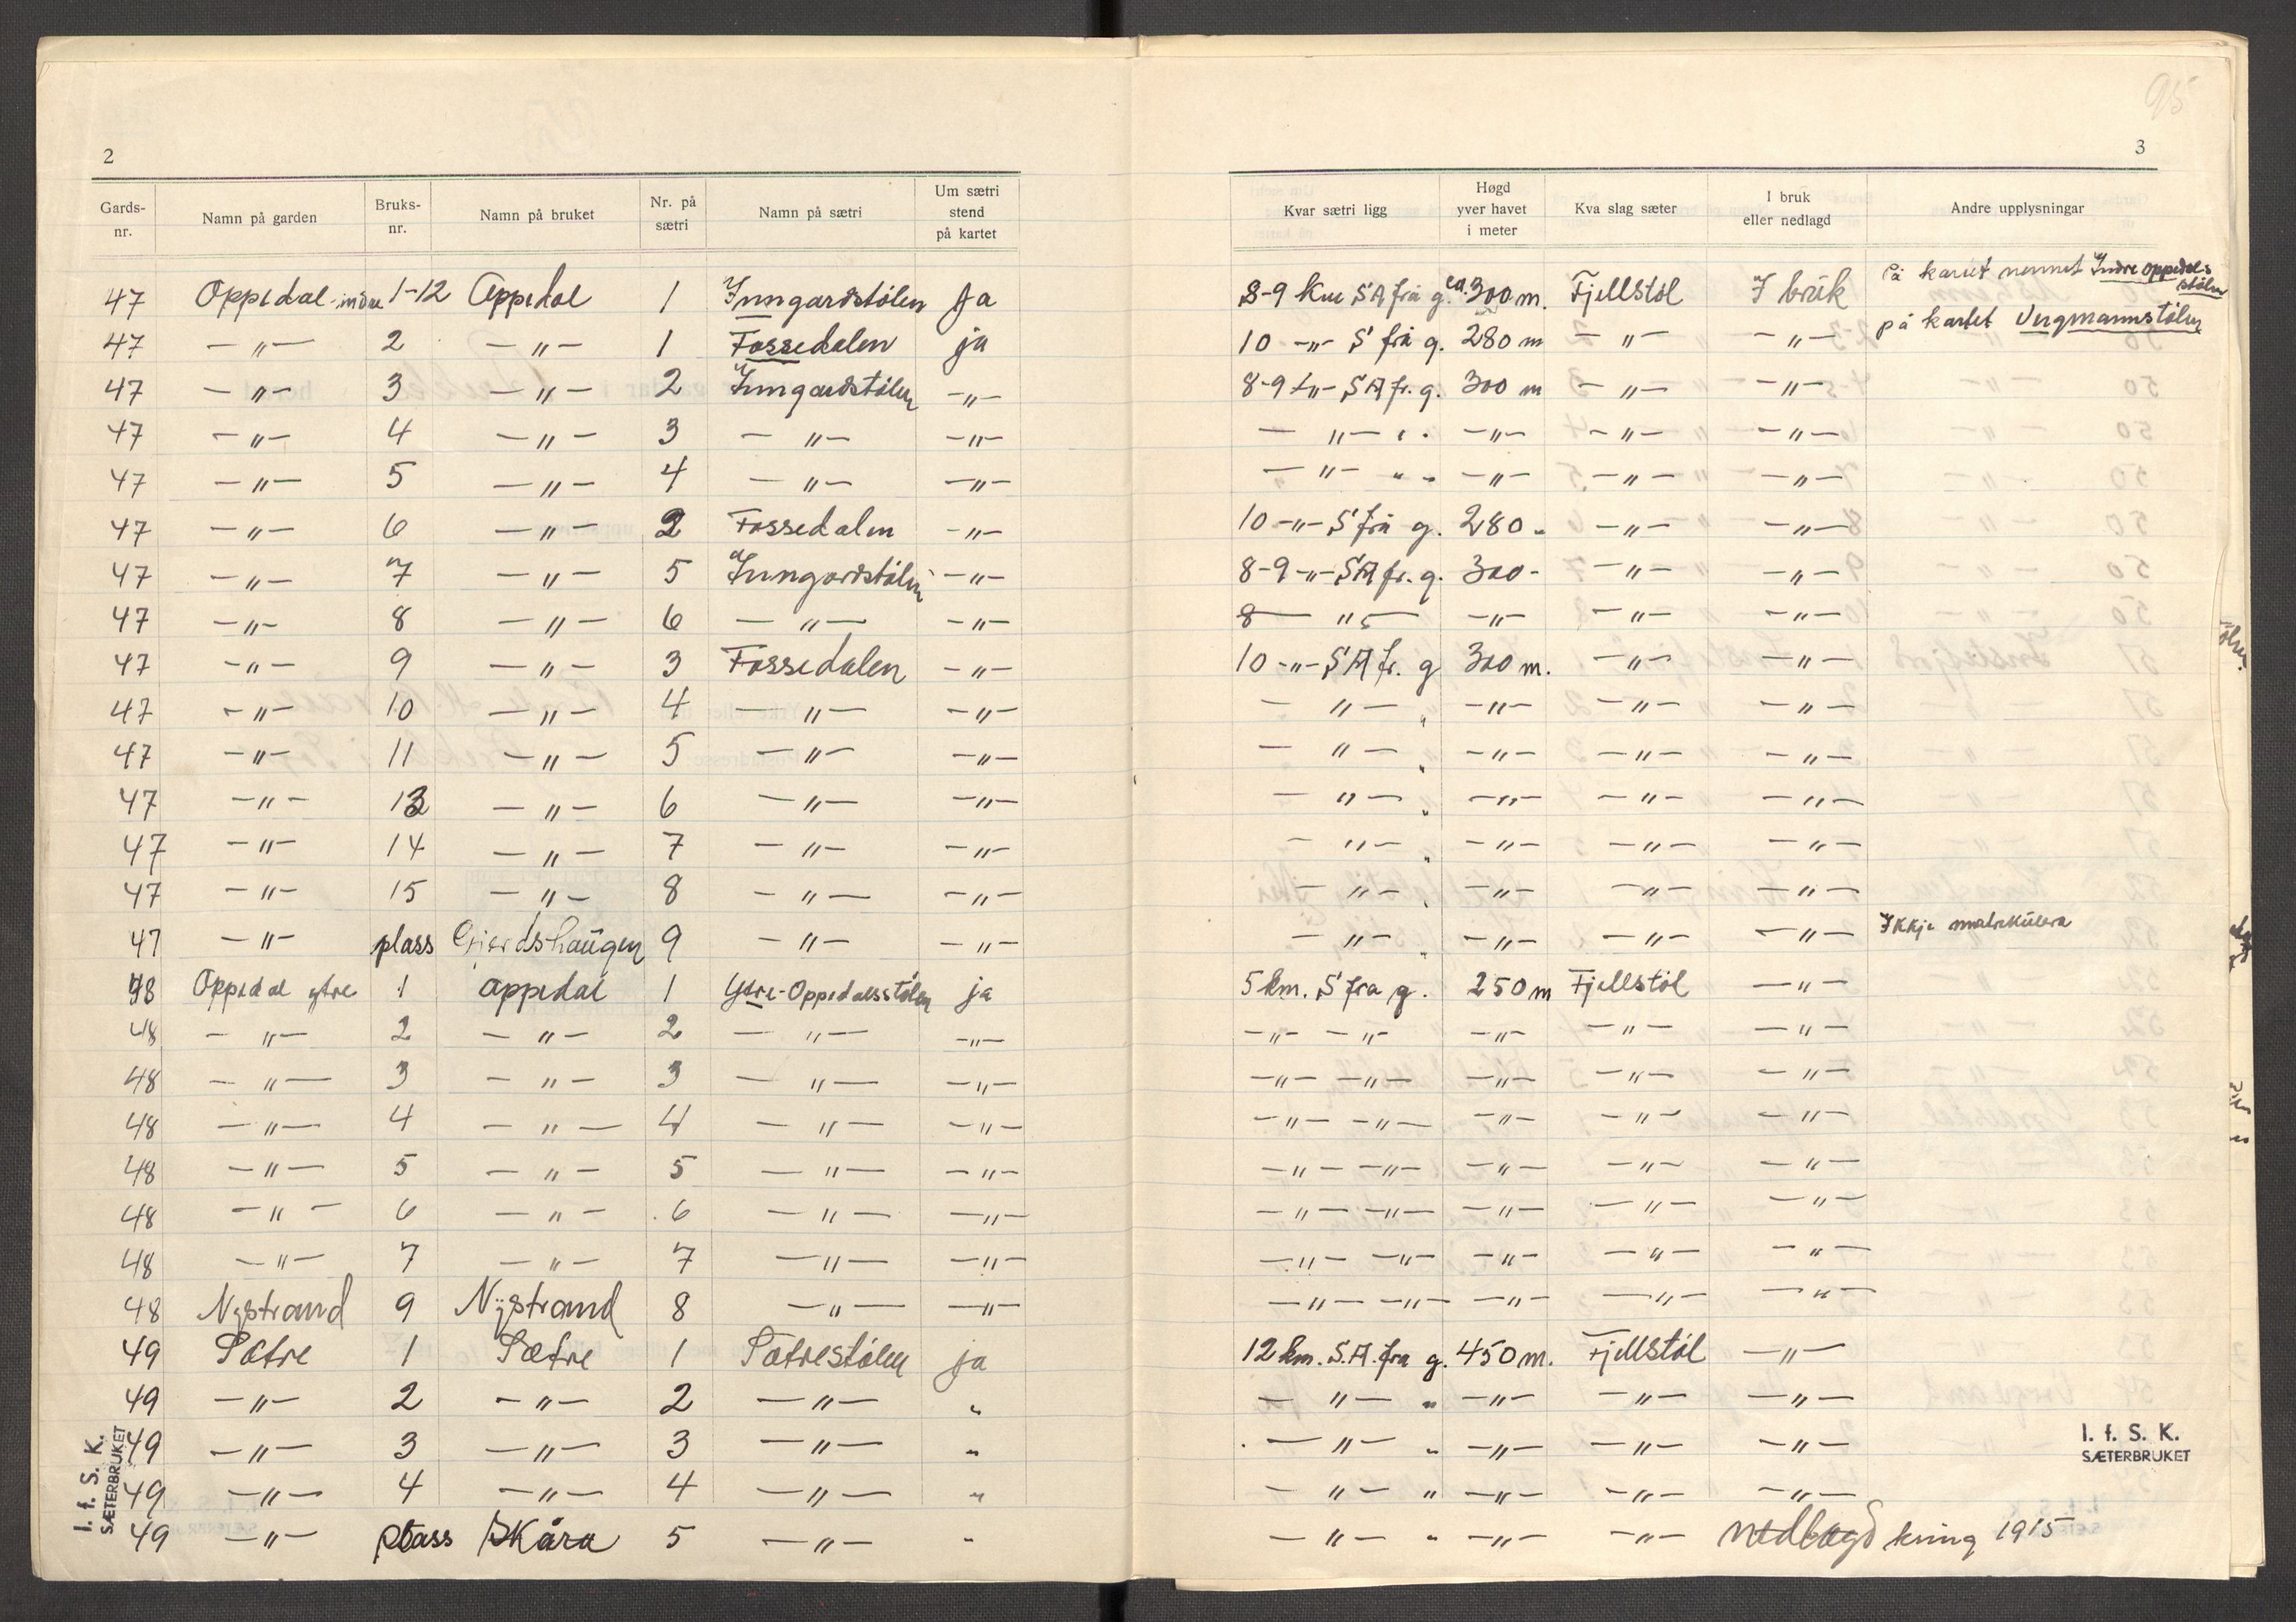 95
2
3
Gards-nr. Namn på garden Bruks-nr. Namn på bruket Nr. på sætri Namn på sætri Um sætri stend på kartet Kvar sætri ligg Høgd yver havet i meter Kva slag sæter I bruk eller nedlagd Andre upplysningar
47 Oppedal indre 1-12 Oppedal 1 Inngardstølen Ja 8-9 km SA frå g. ca. 300 m. Fjellstøl I bruk På kartet nemnt Indre Oppedalsstølen
47 -"- 2 -"- 1 Fossedalen ja 10 -"- S frå g. 280 m -"- -"- på kartet Ungmannstølen
47 -"- 3 -"- 2 Inngardstølen -"- 8-9 -"- SA fr. g. 300 m -"- -"-
47 -"- 4 -"- 3 -"- -"- -"- " " -"- -"- -"-
47 -"- 5 -"- 4 -"- -"- -"- " " -"- -"- -"-
47 -"- 6 -"- 2 Fossedalen -"- 10 -"- S frå g. 280 - -"- -"-
47 -"- 7 -"- 5 Inngardstølen -"- 8-9 -"- SA fr. g. 300 - -"- -"-
47 -"- 8 -"- 6 -"- -"- 8 -"- -"- -"- -"-
47 -"- 9 -"- 3 Fossedalen -"- 10 -"- SA fr. g 300 m. -"- -"-
47 -"- 10 -"- 4 -"- -"- -"- " -"- -"- -"-
47 -"- 11 -"- 5 -"- -"- -"- " -"- -"- -"-
47 -"- 13 -"- 6 -"- -"- -"- " -"- -"- -"-
47 -"- 14 -"- 7 -"- -"- -"- " -"- -"- -"-
47 -"- 15 -"- 8 -"- -"- -"- " -"- -"- -"-
47 -"- plass Gjerdshaugen 9 -"- -"- -"- " -"- -"- -"- Ikkje matrikulera
48 Oppedal ytre 1 Oppedal 1 Ytre-Oppedalsstølen ja 5 km. S fra g. 250 m Fjellstøl -"-
48 -"- 2 -"- 2 -"- -"- -"- -"- -"- -"- -"-
48 -"- 3 -"- 3 -"- -"- -"- -"- -"- -"- -"-
48 -"- 4 -"- 4 -"- -"- -"- -"- -"- -"- -"-
48 -"- 5 -"- 5 -"- -"- -"- -"- -"- -"- -"-
48 -"- 6 -"- 6 -"- -"- -"- -"- -"- -"- -"-
48 -"- 7 -"- 7 -"- -"- -"- -"- -"- -"- -"-
48 Nystrand 9 Nystrand 8 -"- -"- -"- -"- -"- -"- -"-
49 Sætre 1 Sætre 1 Sætrestølen ja 12 km. S.A. fra g. 450 m. Fjellstøl -"-
49 -"- 2 -"- 2 -"- " -"- " -"- -"- -"-
49 -"- 3 -"- 3 -"- " -"- " -"- -"- -"-
49 -"- 4 -"- 4 -"- " -"- " -"- -"- -"-
49 -"- plass Skåra 5 -"- " -"- " -"- -"- Nedlagd kring 1915
I. f. S. K.
SÆTERBRUKET
I. f. S. K.
SÆTERBRUKET